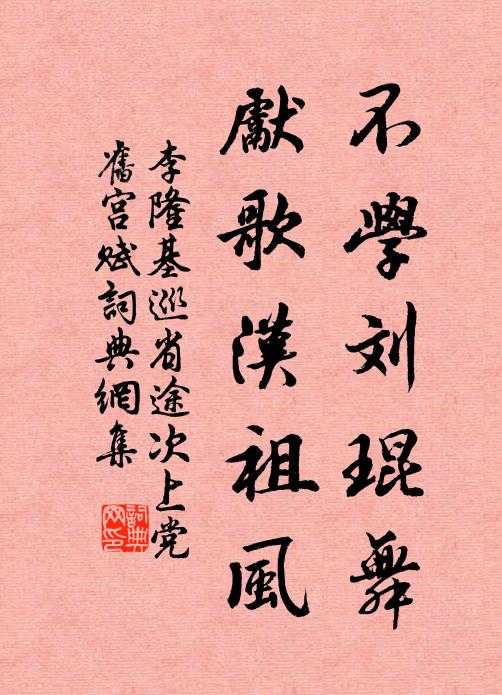 不學刘琨舞
獻歌漢祖風
李隆基巡省途次上党
舊宮赋詞典網集
詞典
网印